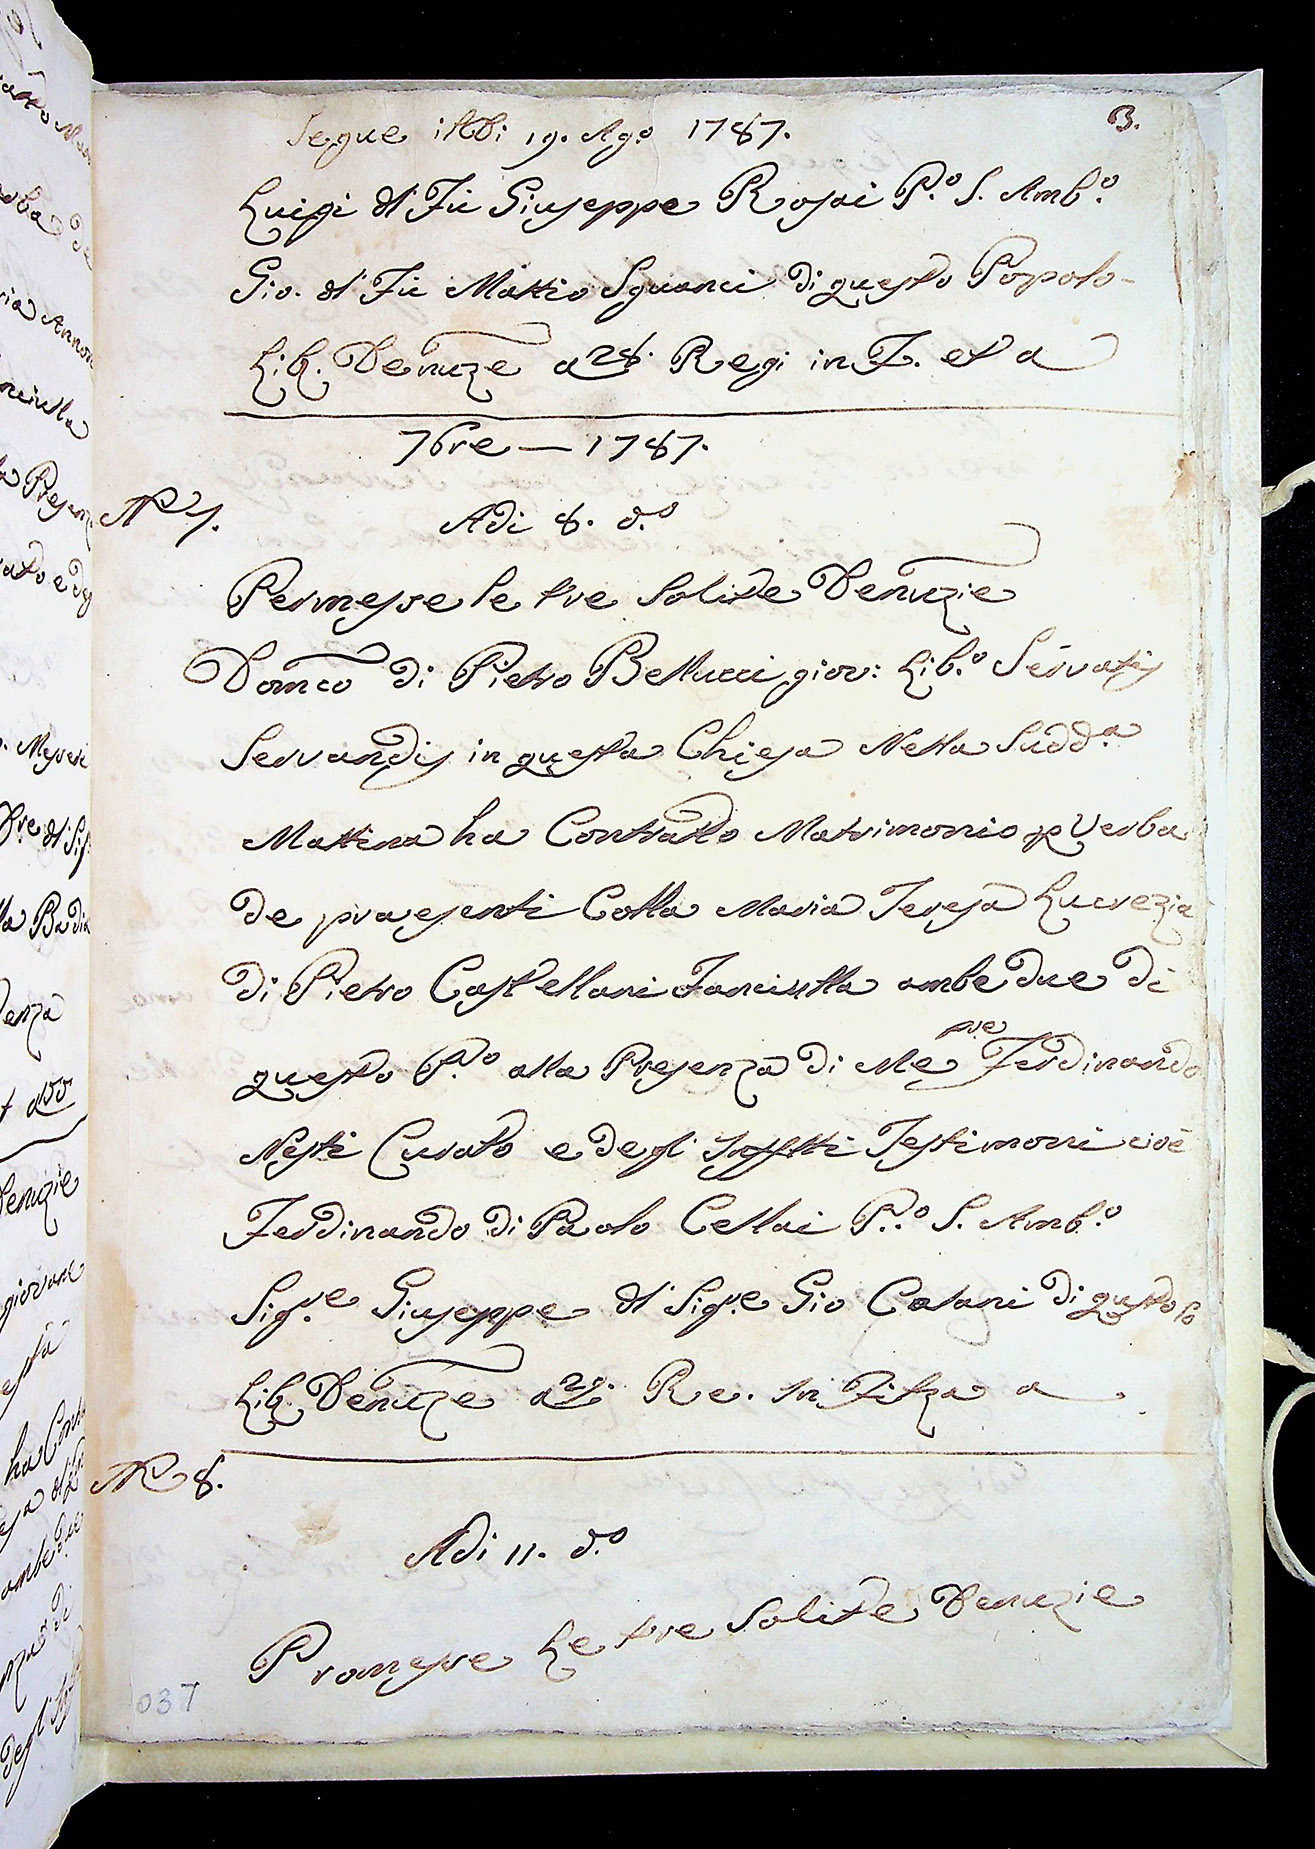 3.
Segue i Adi 19. Ago 1787.
Luigi dl Fu Giuseppe Rosai P.o S. Amb.o
Gio. dl Fu Matteo Sguanci di questo Popolo-
Lib. Denuze a 28. Regi in F. et a
7bre — 1787.
No 7.
Adi 8. d.o
Permesse le tre Solite Denuzie
Domco di Pietro Bellucci giov: Lib.o Servatis
Servandis in questa Chiesa Nella Sudd.a
Mattina ha Contratto Matrimonio p Verba
de praesenti Colla Maria Teresa Lucrezia
di Pietro Castellani Fanciulla ambe due di
questo P.o alla Presenza di Me pre Ferdinando
Nesti Curato e degl Infftti Testimoni cioè
Ferdinando di Paolo Cellai P.o S. Amb.o
Sig.re Giuseppe dl Sig.re Gio Catani di questo Po
Lib. Denuze a Re. In Filza a
No 8.
Adi 11. d.o
Promesse Le tre Solite Denuzie
037
Presenz
Denuzie
giovane
ha Cont
ambedue